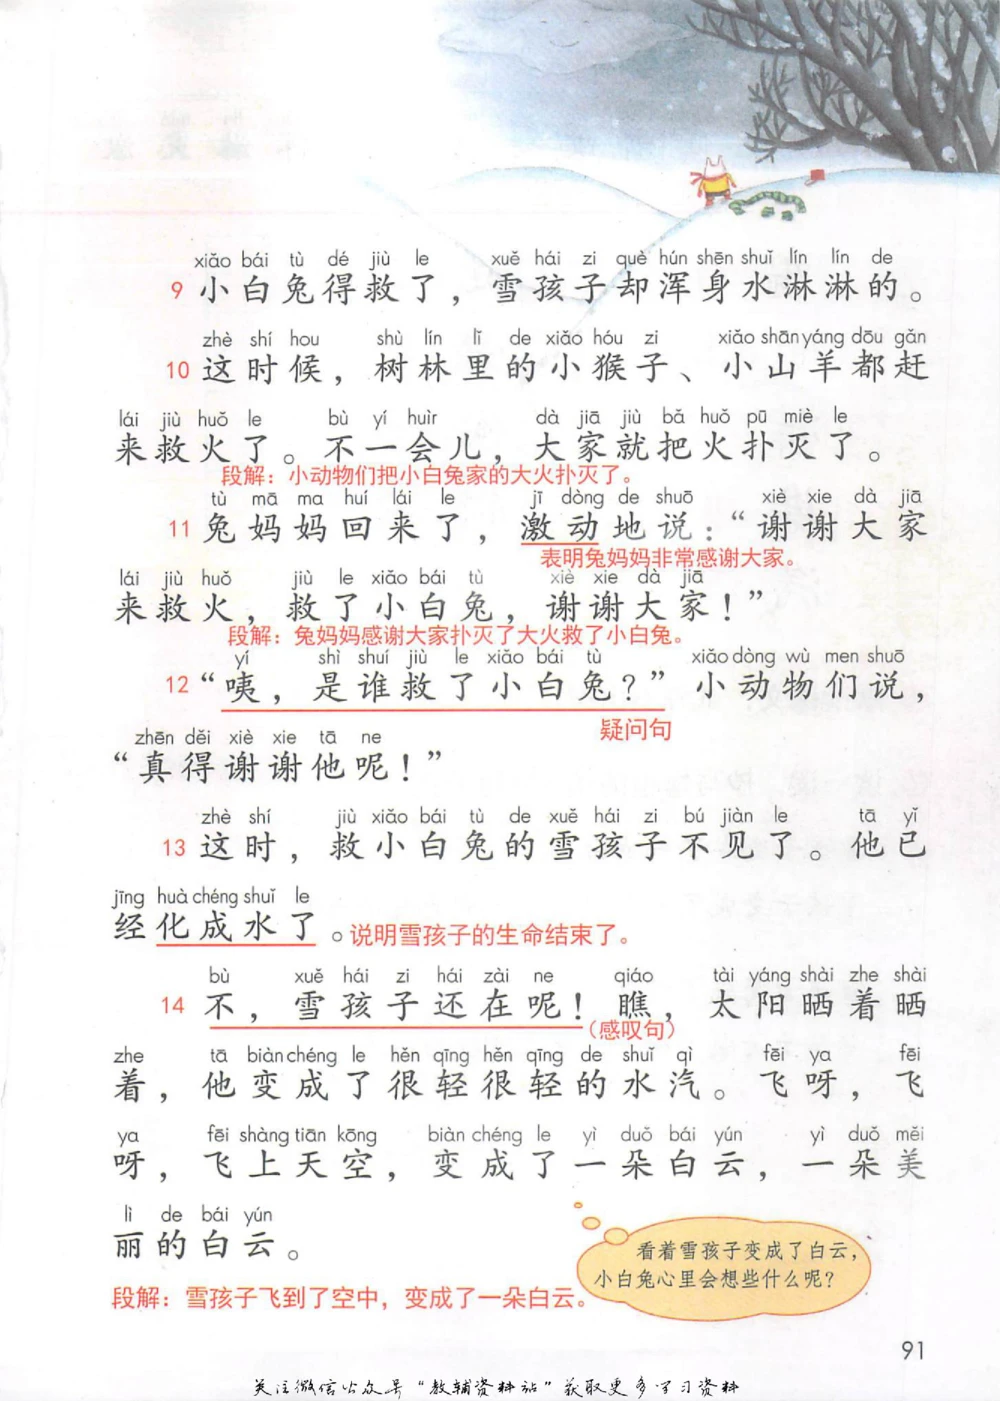 xiǎo bái tù dé jiù le xuě hái zi què hún shēn shuǐ lín lín de
9 小白兔得救了，雪孩子却浑身水淋淋的。
zhè shí hou shù lín lǐ de xiǎo hóu zi xiǎo shān yáng dōu gǎn
10 这时候，树林里的小猴子、小山羊都赶
lái jiù huǒ le bù yí huìr dà jiā jiù bǎ huǒ pū miè le
来救火了。不一会儿，大家就把火扑灭了。
段解：小动物们把小白兔家的大火扑灭了。
tù mā ma huí lái le jī dòng de shuō xiè xie dà jiā
11 兔妈妈回来了，激动地说：“谢谢大家
表明兔妈妈非常感谢大家。
lái jiù huǒ jiù le xiǎo bái tù xiè xie dà jiā
来救火，救了小白兔，谢谢大家！”
段解：兔妈妈感谢大家扑灭了大火救了小白兔。
yí shì shuí jiù le xiǎo bái tù xiǎo dòng wù men shuō
12 “咦，是谁救了小白兔？”小动物们说，
疑问句
zhēn děi xiè xie tā ne
“真得谢谢他呢！”
zhè shí jiù xiǎo bái tù de xuě hái zi bú jiàn le tā yǐ
13 这时，救小白兔的雪孩子不见了。他已
jīng huà chéng shuǐ le
经化成水了。说明雪孩子的生命结束了。
bù xuě hái zi hái zài ne qiáo tài yáng shài zhe shài
14 不，雪孩子还在呢！瞧，太阳晒着晒
（感叹句）
zhe tā biàn chéng le hěn qīng hěn qīng de shuǐ qì fēi ya fēi
着，他变成了很轻很轻的水汽。飞呀，飞
ya fēi shàng tiān kōng biàn chéng le yì duǒ bái yún yì duǒ měi
呀，飞上天空，变成了一朵白云，一朵美
lì de bái yún
丽的白云。
看着雪孩子变成了白云，
小白兔心里会想些什么呢？
段解：雪孩子飞到了空中，变成了一朵白云。
91
关注微信公众号“教辅资料站”获取更多学习资料